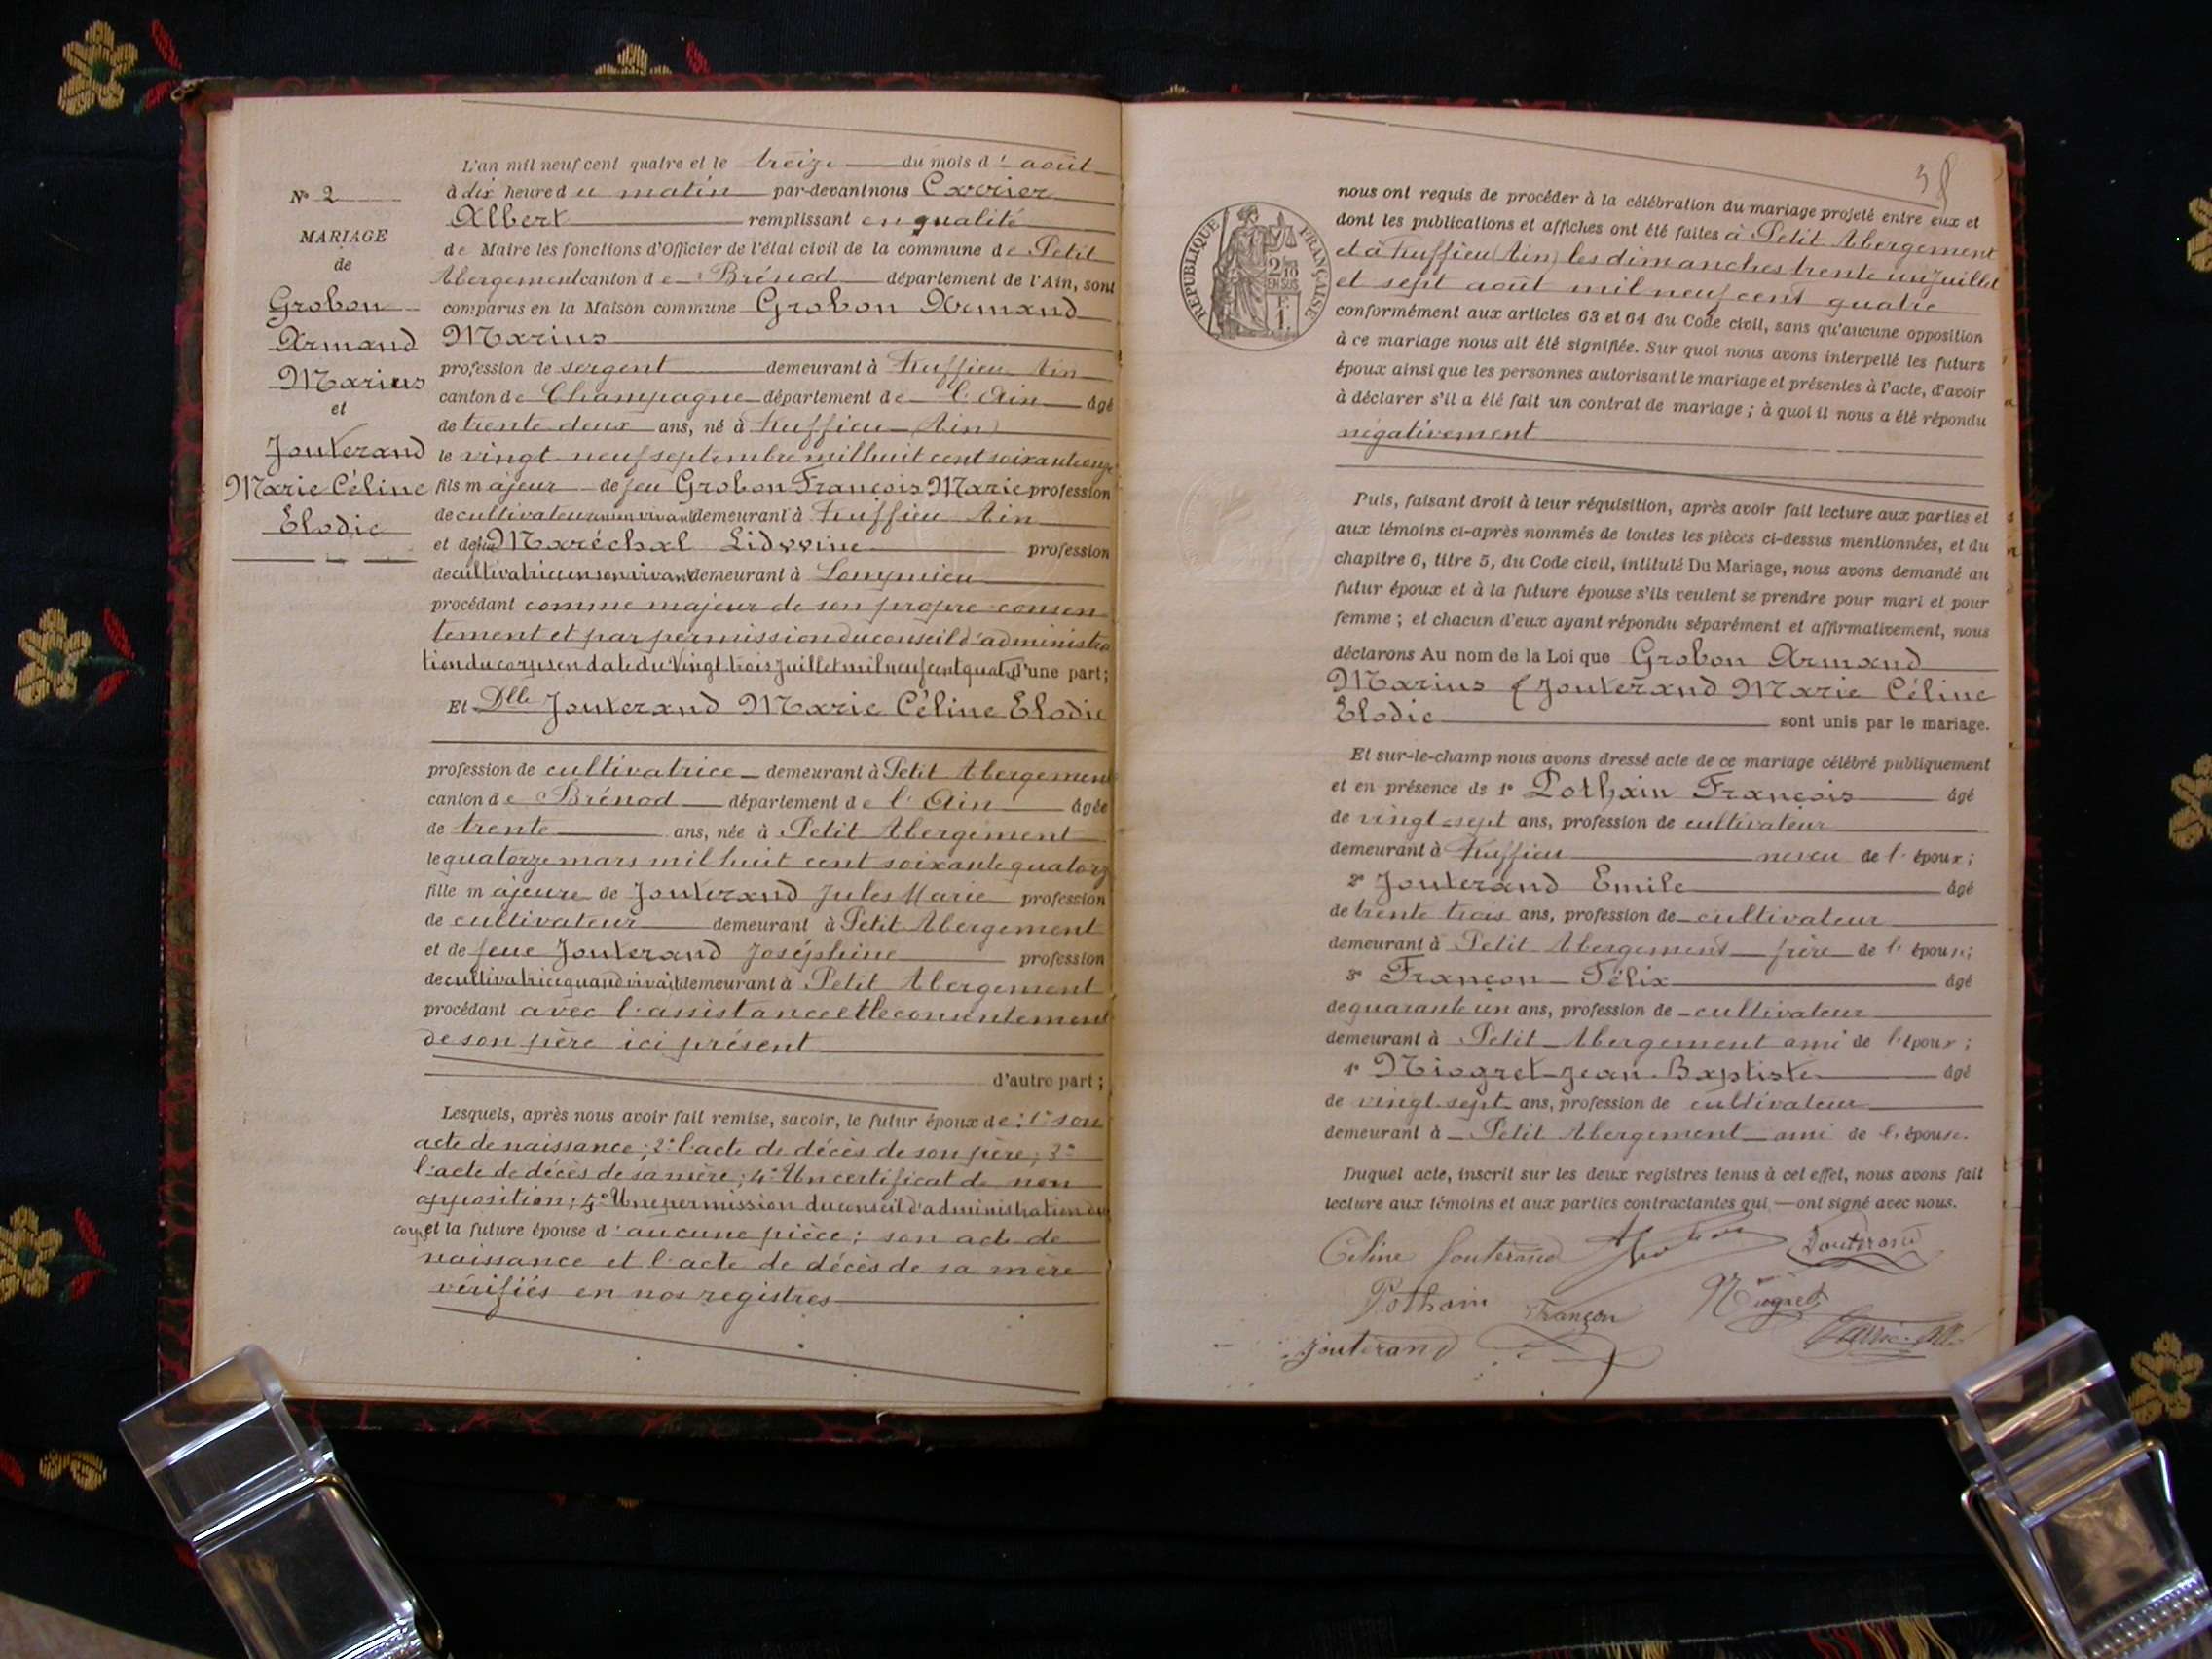 L'an mil neuf cent quatre et le treize du mois d'août
à dix heure du matin par-devant nous Carrier
Albert remplissant en qualité
de Maire les fonctions d'Officier de l'état civil de la commune de Petit
Abergement canton de Brénod département de l'Ain, sont
comparus en la Maison commune Grobon Armand
Marius
profession de sergent demeurant à Ruffieu Ain
canton de Champagne département de l'Ain âgé
de trente deux ans, né à Ruffieu (Ain)
le vingt neuf septembre mil huit cent soixante onze
fils majeur de feu Grobon François Marie profession
de cultivateur en son vivant demeurant à Ruffieu Ain
et de feue Maréchal Lidwine profession
de cultivatrice en son vivant demeurant à Lompnieu
procédant comme majeur de son propre consen
tement et par permission du conseil d'administra
tion du corps en date du vingt trois juillet mil neuf cent quatre d'une part;
Et Dlle Jouterand Marie Céline Elodie
profession de cultivatrice demeurant à Petit Abergement
canton de Brénod département de l'Ain âgée
de trente ans, née à Petit Abergement
le quatorze mars mil huit cent soixante quatorze
fille majeure de Jouterand Jules Marie profession
de cultivateur demeurant à Petit Abergement
et de feue Jouterand Joséphine profession
de cultivatrice quand vivait demeurant à Petit Abergement
procédant avec l'assistance et le consentement
de son père ici présent
d'autre part;
Lesquels, après nous avoir fait remise, savoir, le futur époux de: 1° son
acte de naissance; 2° l'acte de décès de son père; 3°
l'acte de décès de sa mère; 4° Un certificat de non
opposition; 5° Une permission du conseil d'administration du
corps et la future épouse d'aucune pièce; son acte de
naissance et l'acte de décès de sa mère
vérifiés en nos registres
N° 2
MARIAGE
de
Grobon
Armand
Marius
et
Jouterand
Marie Céline
Elodie
38
REPUBLIQUE FRANÇAISE
2/10
EN SUS
1 F.
nous ont requis de procéder à la célébration du mariage projeté entre eux et
dont les publications et affiches ont été faites à Petit Abergement
et à Ruffieu (Ain) les dimanches trente un juillet
et sept août mil neuf cent quatre
conformément aux articles 63 et 64 du Code civil, sans qu'aucune opposition
à ce mariage nous ait été signifiée. Sur quoi nous avons interpellé les futurs
époux ainsi que les personnes autorisant le mariage et présentes à l'acte, d'avoir
à déclarer s'il a été fait un contrat de mariage; à quoi il nous a été répondu
négativement
Puis, faisant droit à leur réquisition, après avoir fait lecture aux parties et
aux témoins ci-après nommés de toutes les pièces ci-dessus mentionnées, et du
chapitre 6, titre 5, du Code civil, intitulé Du Mariage, nous avons demandé au
futur époux et à la future épouse s'ils veulent se prendre pour mari et pour
femme; et chacun d'eux ayant répondu séparément et affirmativement, nous
déclarons Au nom de la Loi que Grobon Armand
Marius & Jouterand Marie Céline
Elodie sont unis par le mariage.
Et sur-le-champ nous avons dressé acte de ce mariage célébré publiquement
et en présence de 1° Pothain François âgé
de vingt-sept ans, profession de cultivateur
demeurant à Ruffieu neveu de l'époux;
2° Jouterand Emile âgé
de trente trois ans, profession de cultivateur
demeurant à Petit Abergement frère de l'épouse;
3° Françon Félix âgé
de quarante un ans, profession de cultivateur
demeurant à Petit Abergement ami de l'époux;
4° Niogret Jean-Baptiste âgé
de vingt-sept ans, profession de cultivateur
demeurant à Petit Abergement ami de l'épouse.
Duquel acte, inscrit sur les deux registres tenus à cet effet, nous avons fait
lecture aux témoins et aux parties contractantes qui ont signé avec nous.
Céline Jouterand Jouterand
Pothain Françon Niogret
Jouterand